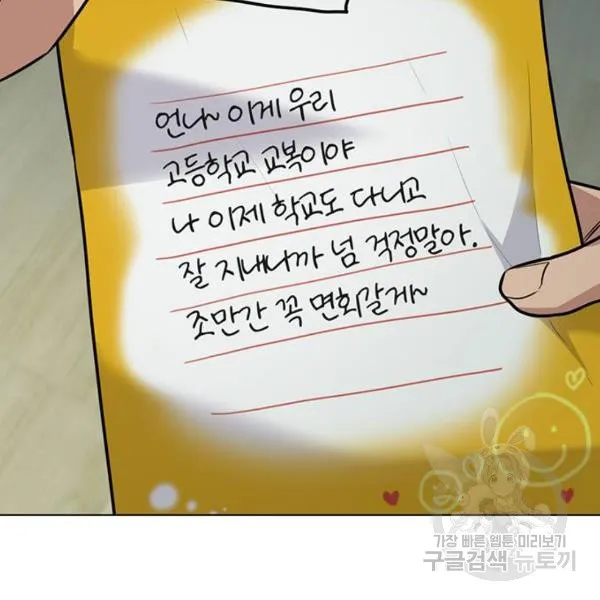 언니~ 이게 우리
고등학교 교복이야
나 이제 학교도 다니고
잘 지내니까 넘 걱정말아.
조만간 꼭 면회갈게~
가장 빠른 웹툰 미리보기
구글검색 뉴토끼